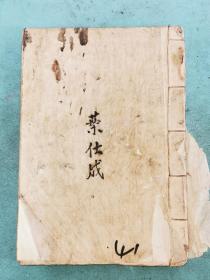 葉仕成
41